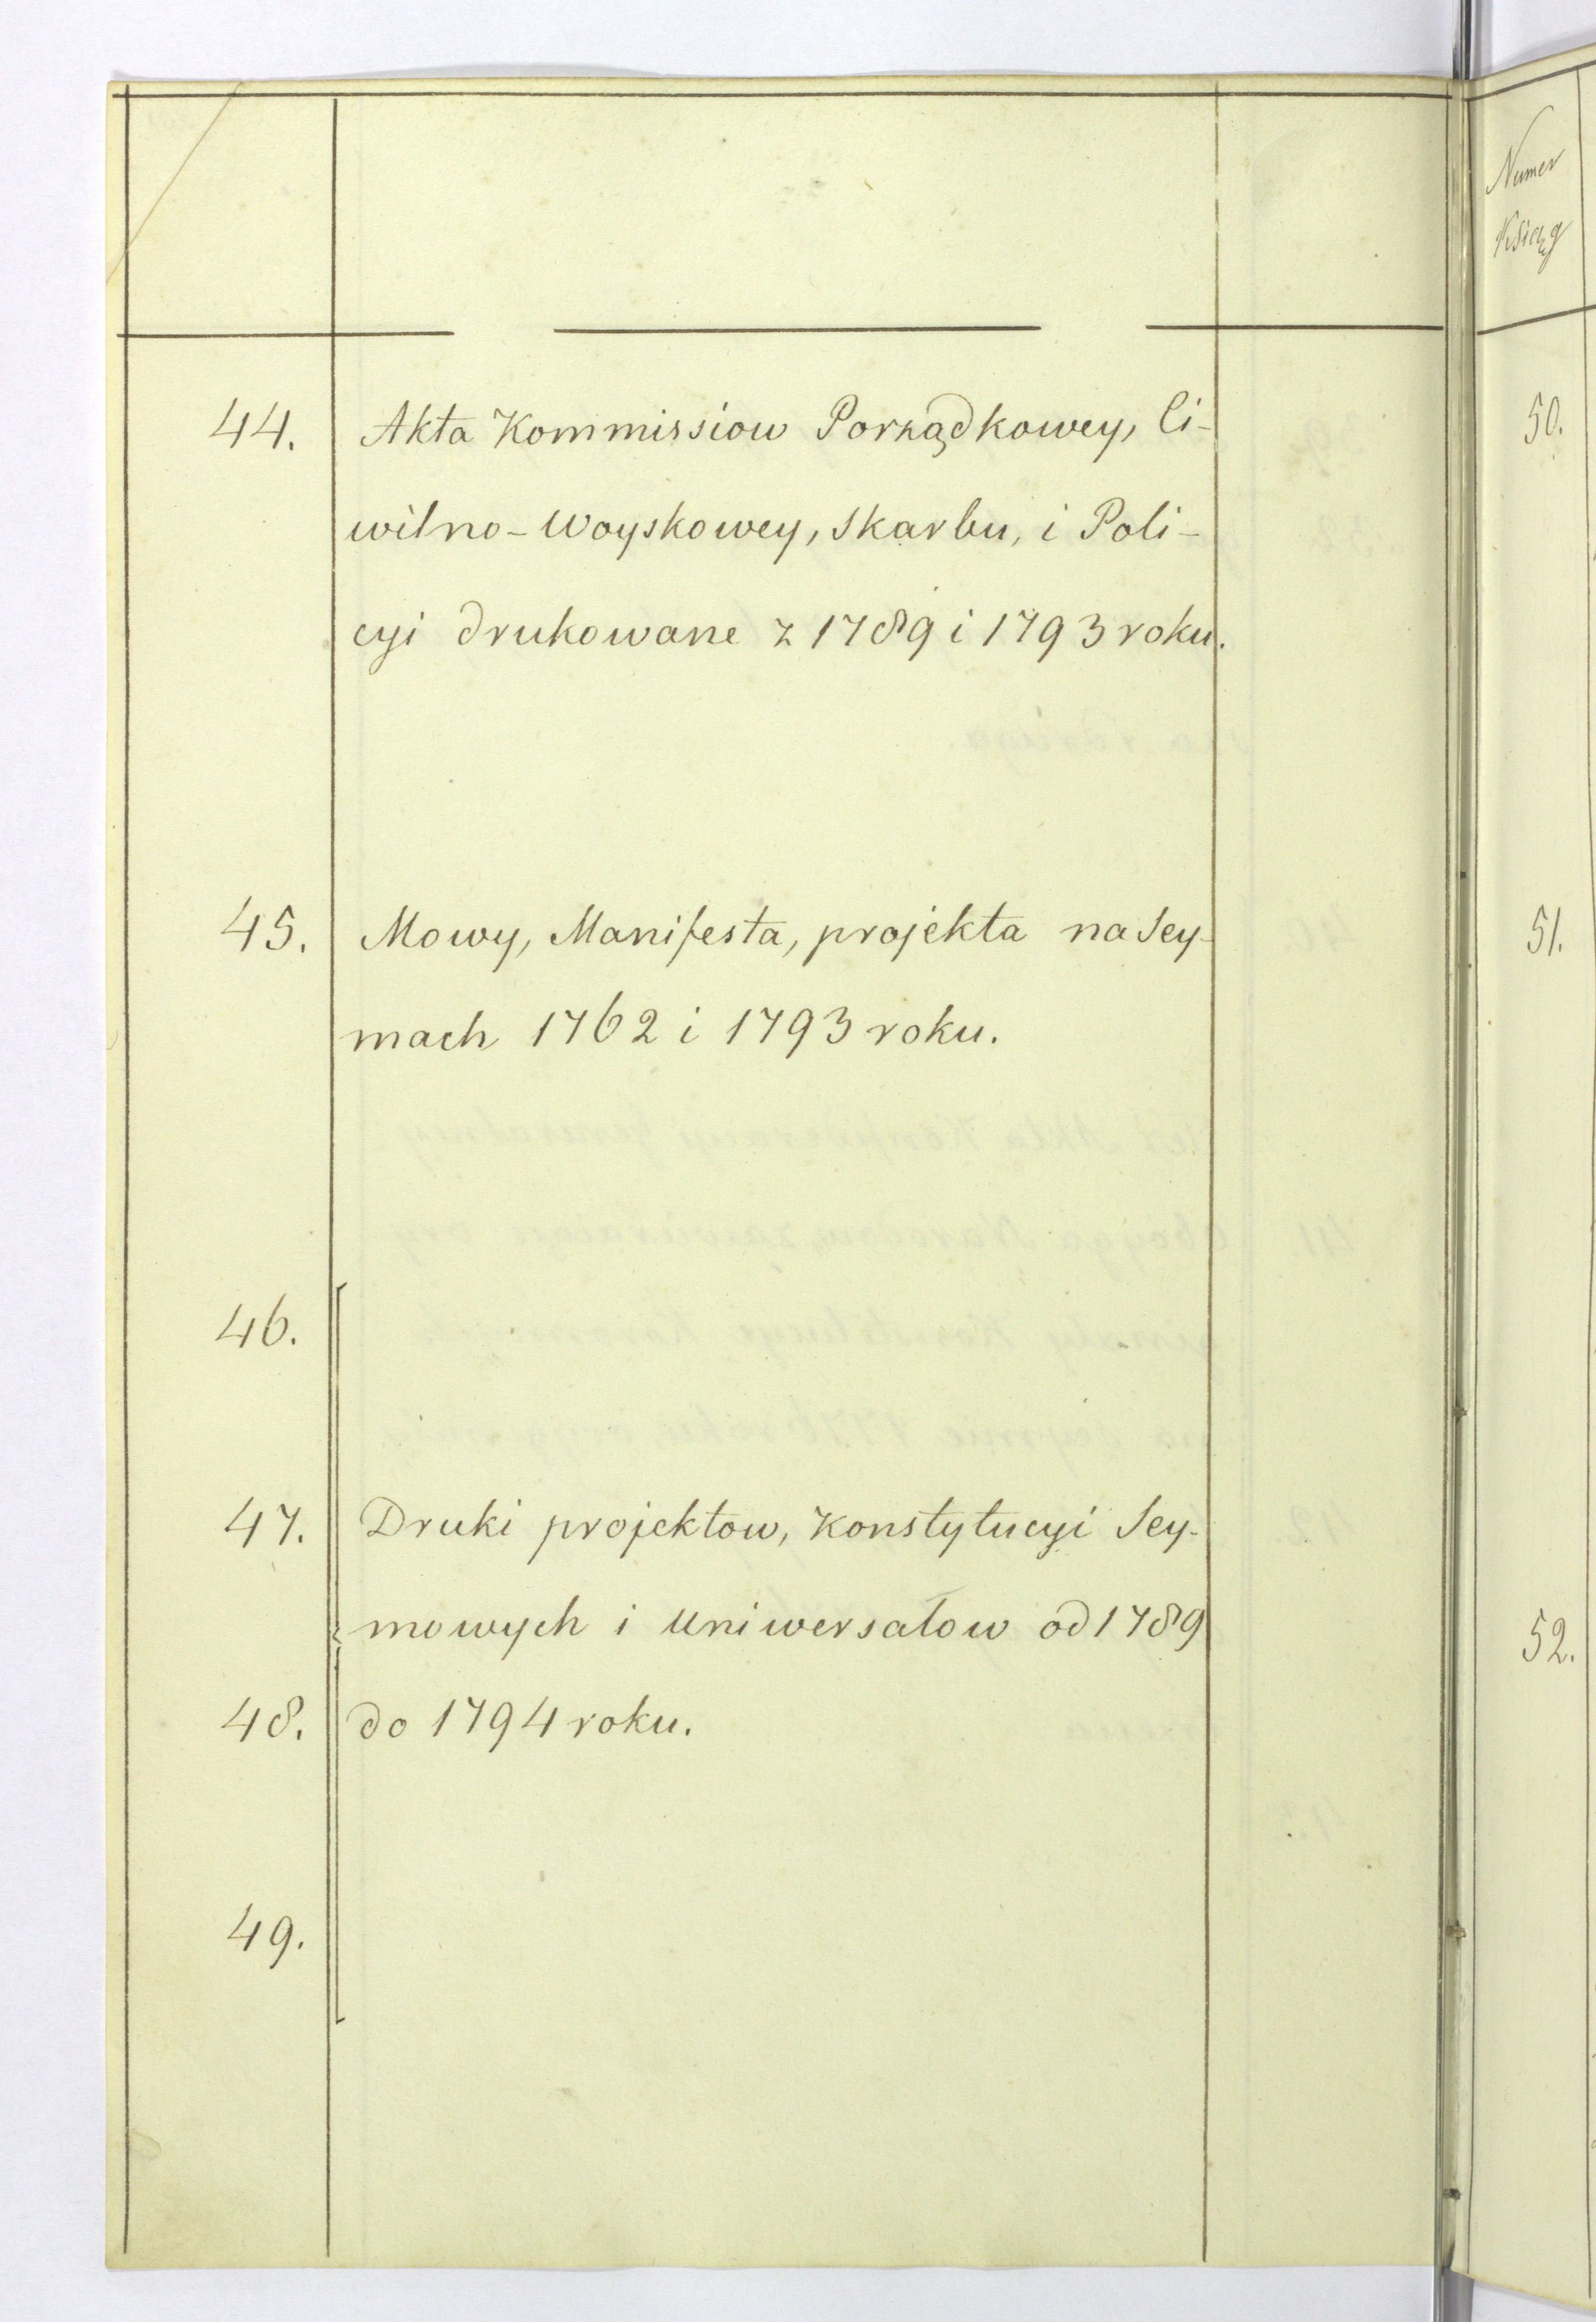 44. Akta Kommissiow Porządkowey, Ci-
wilno-Woyskowey, Skarbu, i Poli-
cyi drukowane z 1789 i 1793 roku.
45. Mowy, Manifesta, projekta na Sey-
mach 1762 i 1793 roku.
46.
47. Druki projektow, Konstytucyi Sey-
mowych i Uniwersałow od 1789
48. do 1794 roku.
49.
Numer
Ksiąg
50.
51.
52.